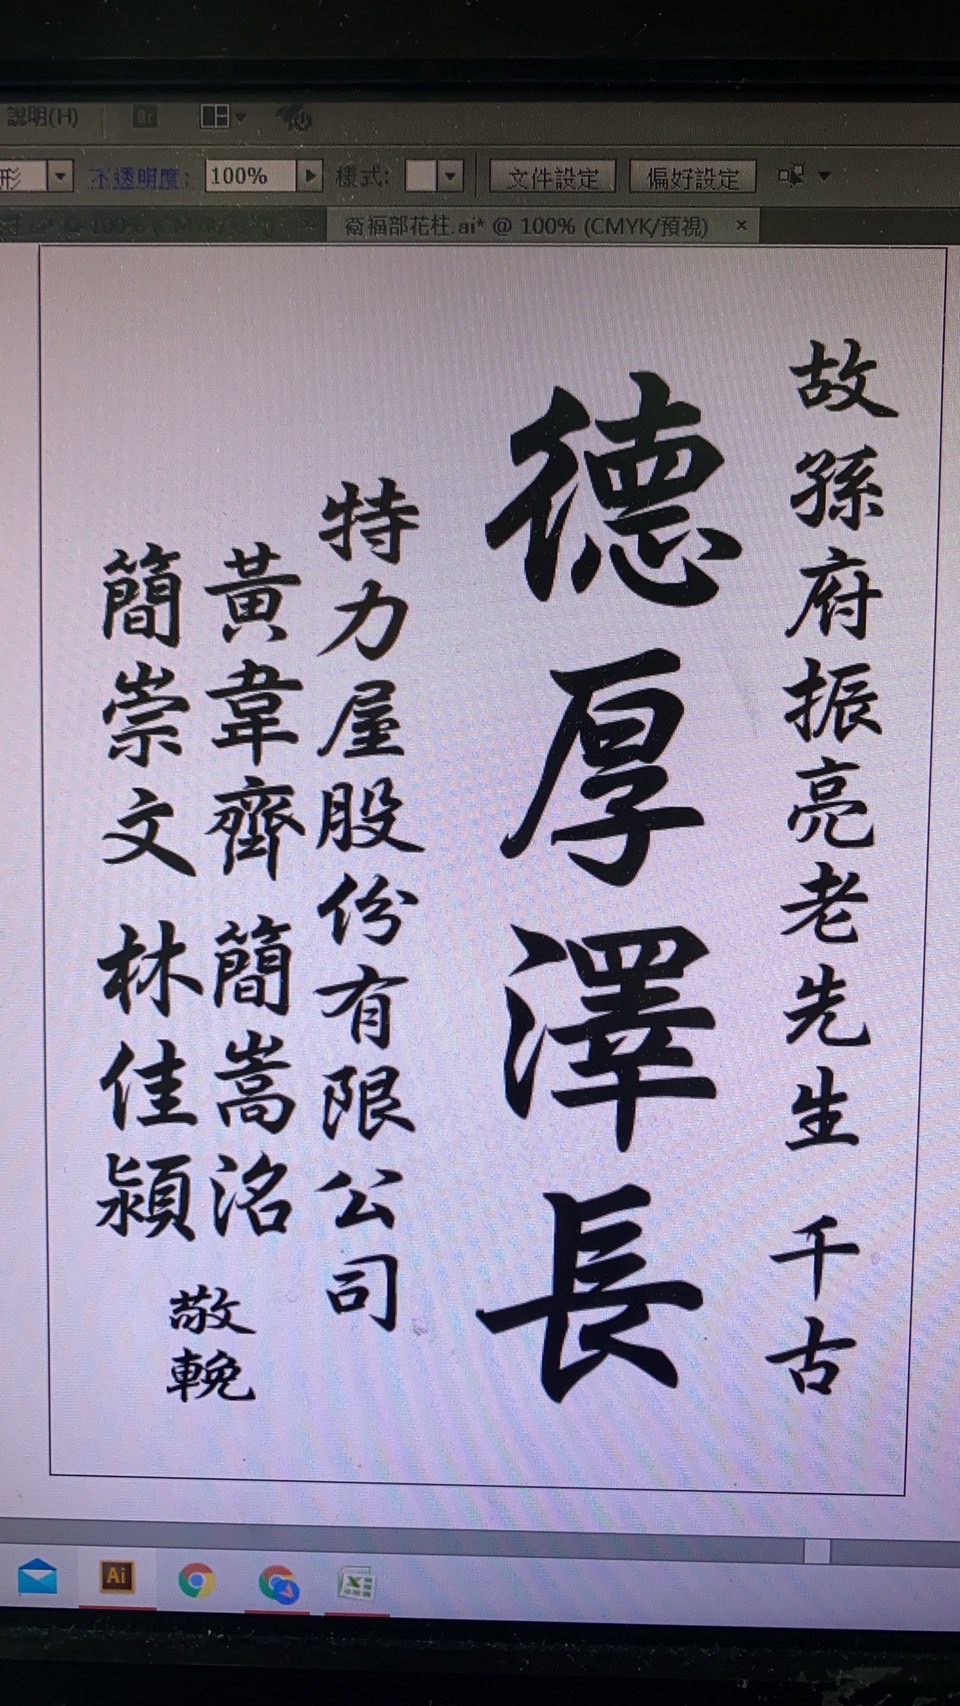 說明(H)
Br
形
不透明度: 100% 樣式: 文件設定 偏好設定
衛福部花柱.ai* @ 100% (CMYK/預視) ×
故孫府振亮老先生 千古
德厚澤長
特力屋股份有限公司
黃韋齊 簡嵩洺
簡崇文 林佳潁
敬輓
Ai